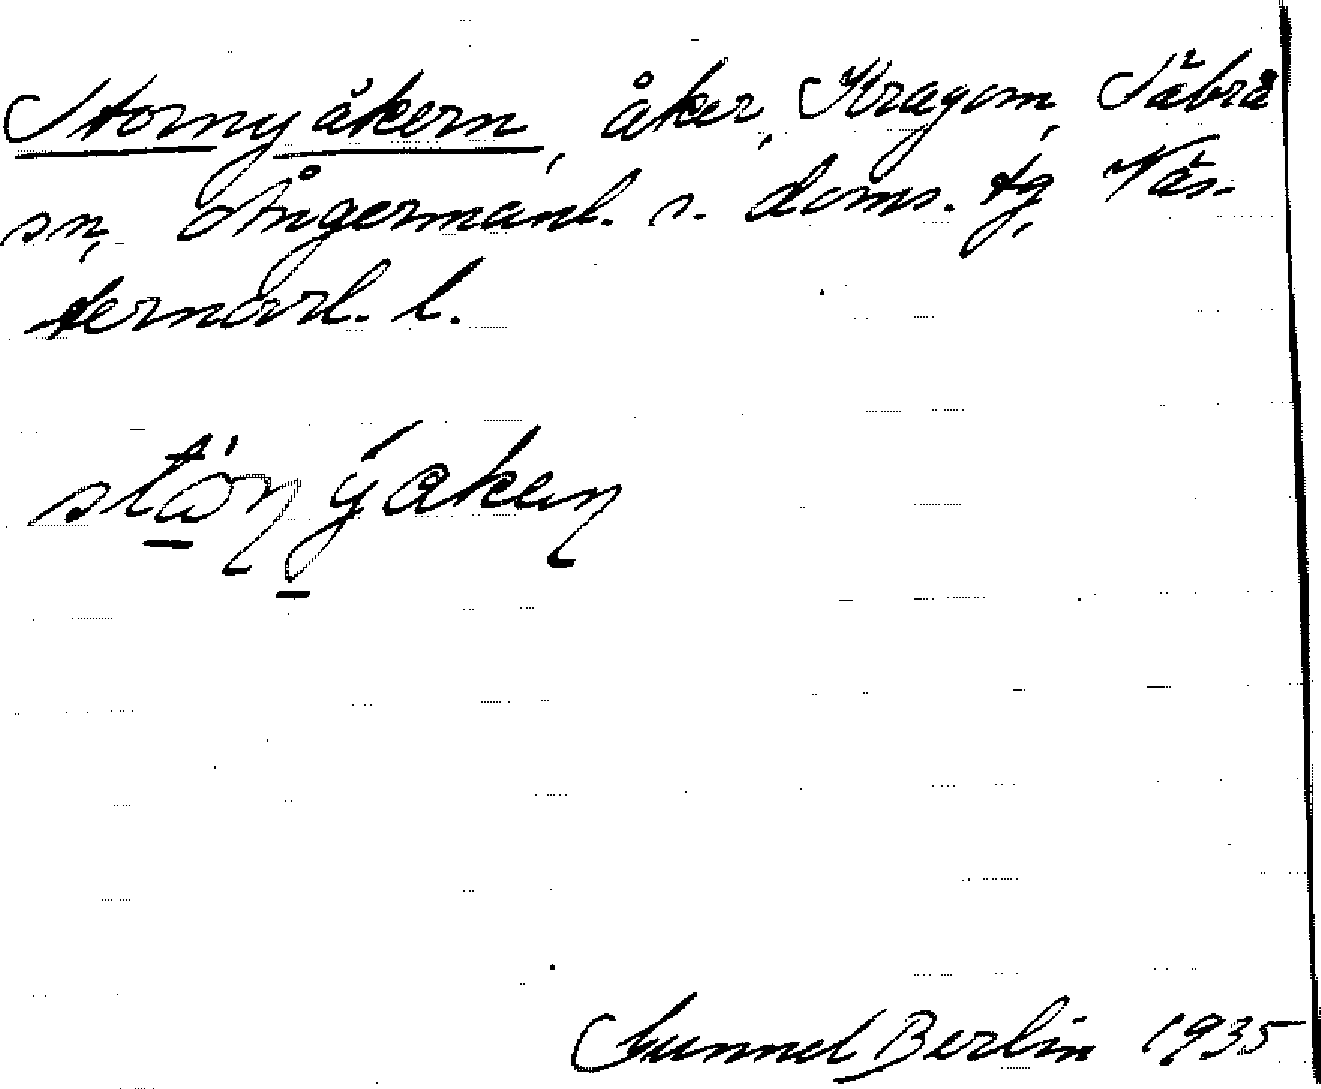 Stornyåkern, åker, Kragom, Säbrå
sn, Ångermanl. s. doms. tg, Väs-
ternorrl. l.
Gunnel Berlin 1935